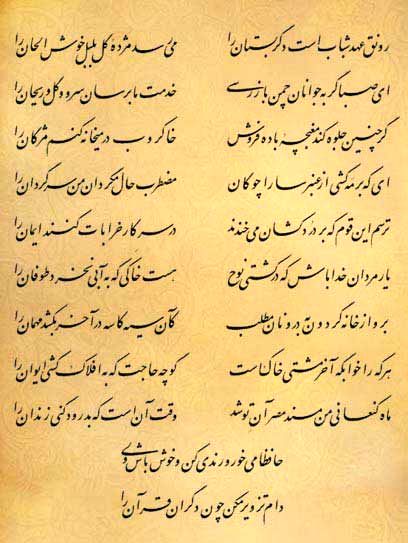 رونق عهد شباب است دگر بستان را می‌رسد مژدهٔ گل بلبل خوش الحان را
ای صبا گر به جوانان چمن باز رسی خدمت ما برسان سرو و گل و ریحان را
گر چنین جلوه کند مغبچهٔ باده فروش خاکروب در میخانه کنم مژگان را
ای که بر مه کشی از عنبر سارا چوگان مضطرب حال مگردان من سرگردان را
ترسم این قوم که بر دردکشان می‌خندند در سر کار خرابات کنند ایمان را
یار مردان خدا باش که در کشتی نوح هست خاکی که به آبی نخرد طوفان را
برو از خانهٔ گردون به در و نان مطلب کآن سیه کاسه در آخر بکشد مهمان را
هر که را خوابگه آخر مشتی خاک است گو چه حاجت که به افلاک کشی ایوان را
ماه کنعانی من مسند مصر آن تو شد وقت آن است که بدرود کنی زندان را
حافظا می خور و رندی کن و خوش باش ولی
دام تزویر مکن چون دگران قرآن را